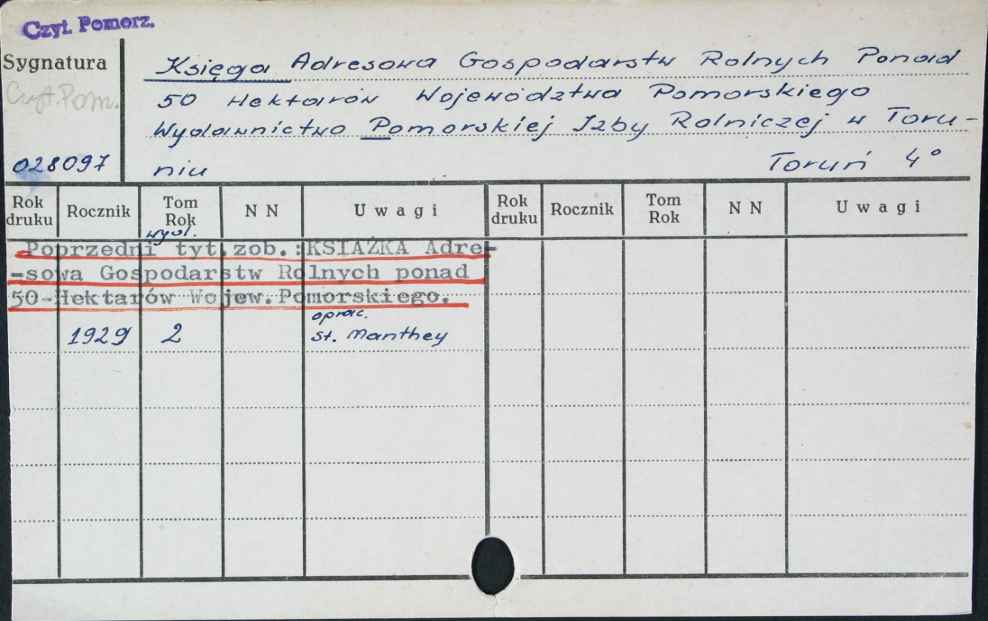 Czyt. Pomorz.
Sygnatura
Czyt. Pom.
028097
Księga Adresowa Gospodarstw Rolnych Ponad
50 Hektarów Województwa Pomorskiego
Wydawnictwo Pomorskiej Izby Rolniczej w Toru-
niu Toruń 4°
Rok druku Rocznik Tom Rok N N Uwagi Rok druku Rocznik Tom Rok N N Uwagi
wyd.
Poprzedni tyt.zob.:KSIĄŻKA Adre-
-sowa Gospodarstw Rolnych ponad
50-Hektarów Wojew.Pomorskiego.
oprac.
1929 2 St. Manthey